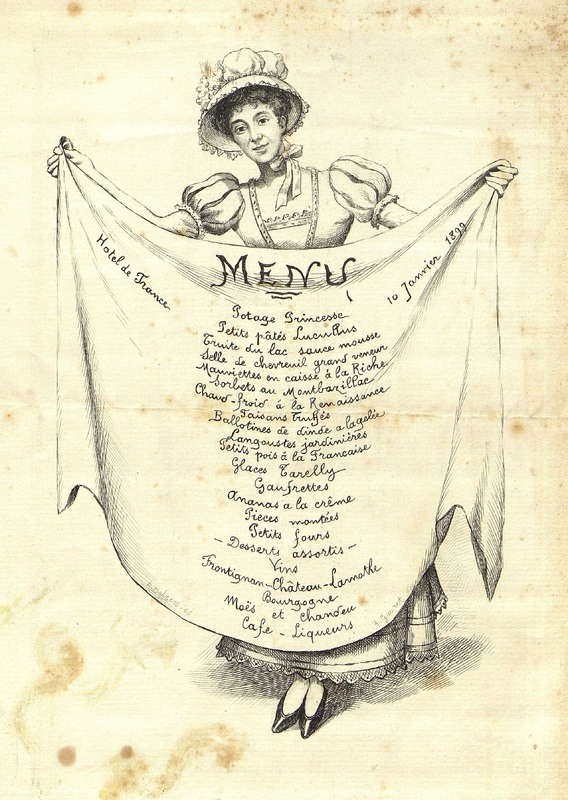 Hotel de France
10 Janvier 1899
MENU
Potage Princesse
Petits pâtés Lucullus
Truite du lac sauce mousse
Selle de chevreuil grand veneur
Mauviettes en caisse à la Riche
Sorbets au Montbazillac
Chaud-froid à la Renaissance
Faisans truffés
Ballotines de dinde a la gelée
Langoustes jardinières
Petits pois à la Francaise
Glaces Tarelly
Gaufrettes
Ananas a la crême
Pieces montées
Petits fours
- Desserts assortis -
Vins
Frontignan-Château-Lamothe
Bourgogne
Moës et Chandeu
Cafe - Liqueurs